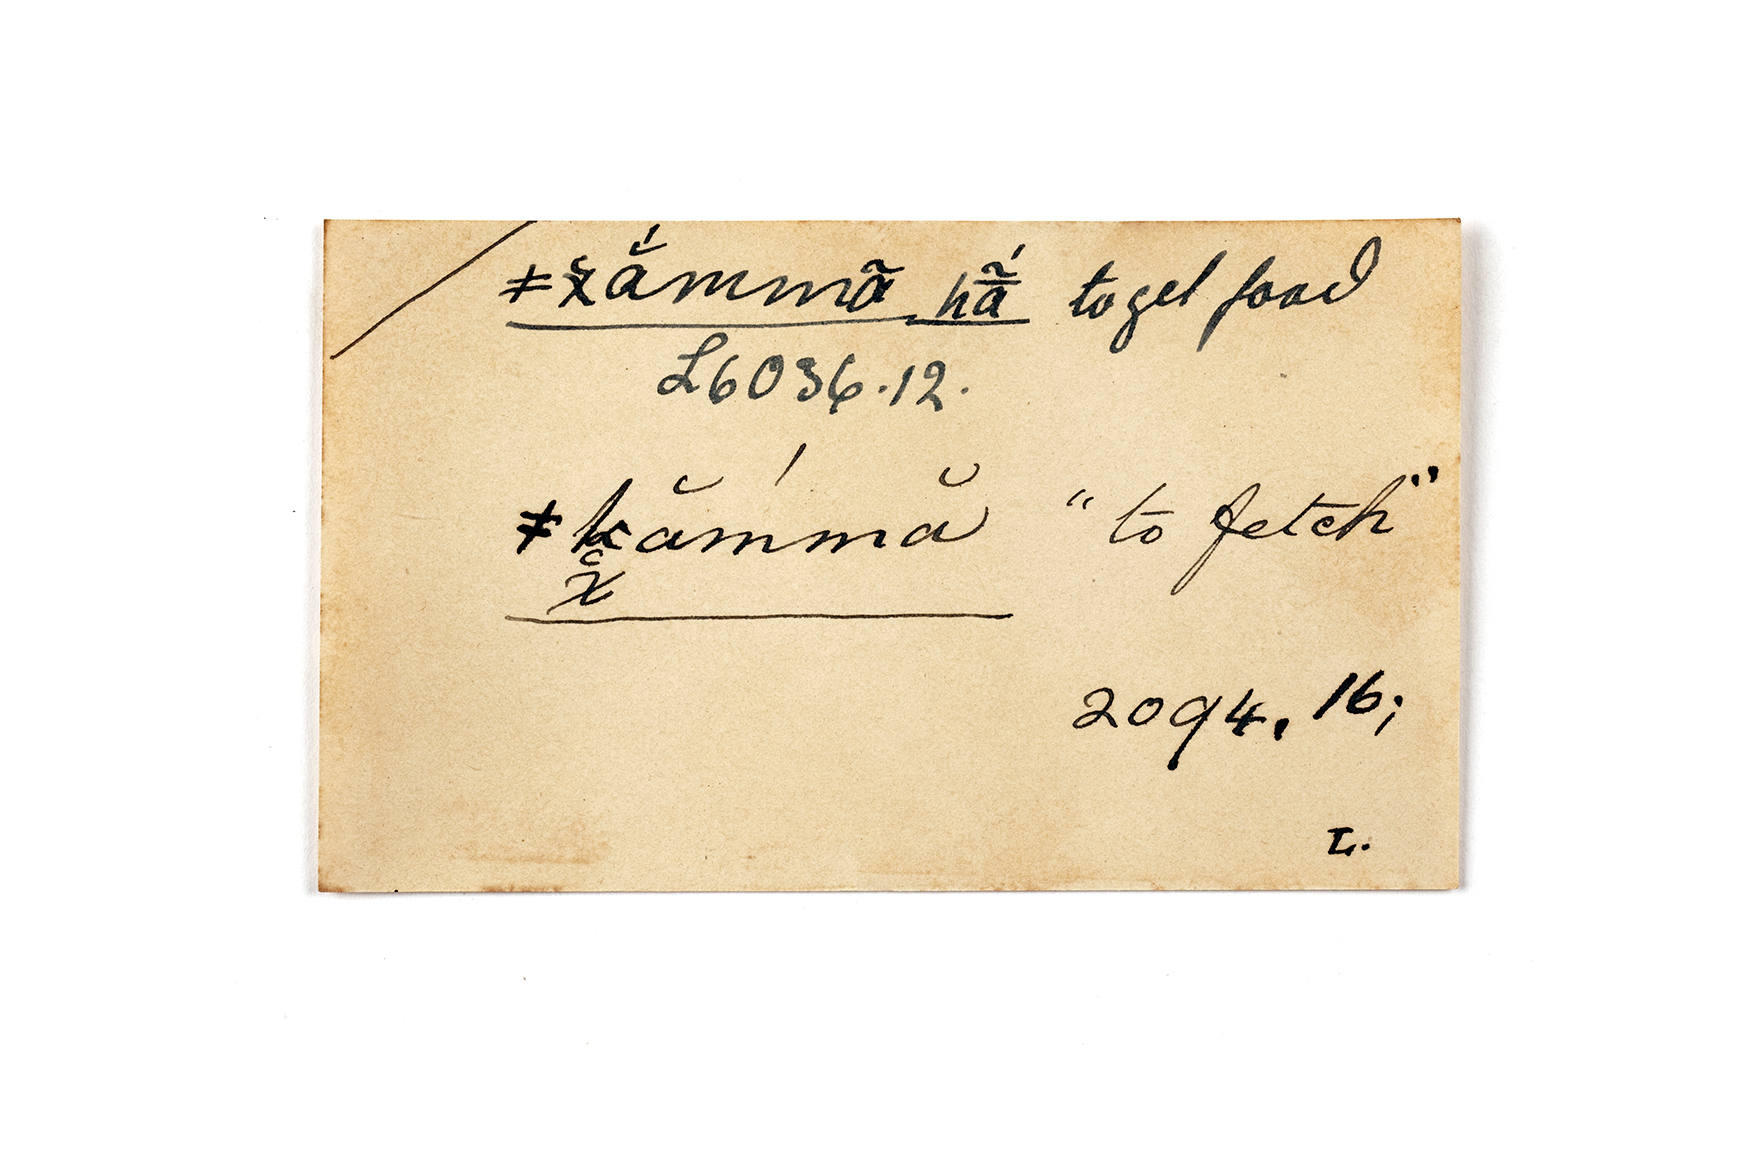 ǂχ̆ắmmã hã́ to get food
L6036.12.
ǂkămḿă "to fetch"
χ̆
2094, 16;
L.